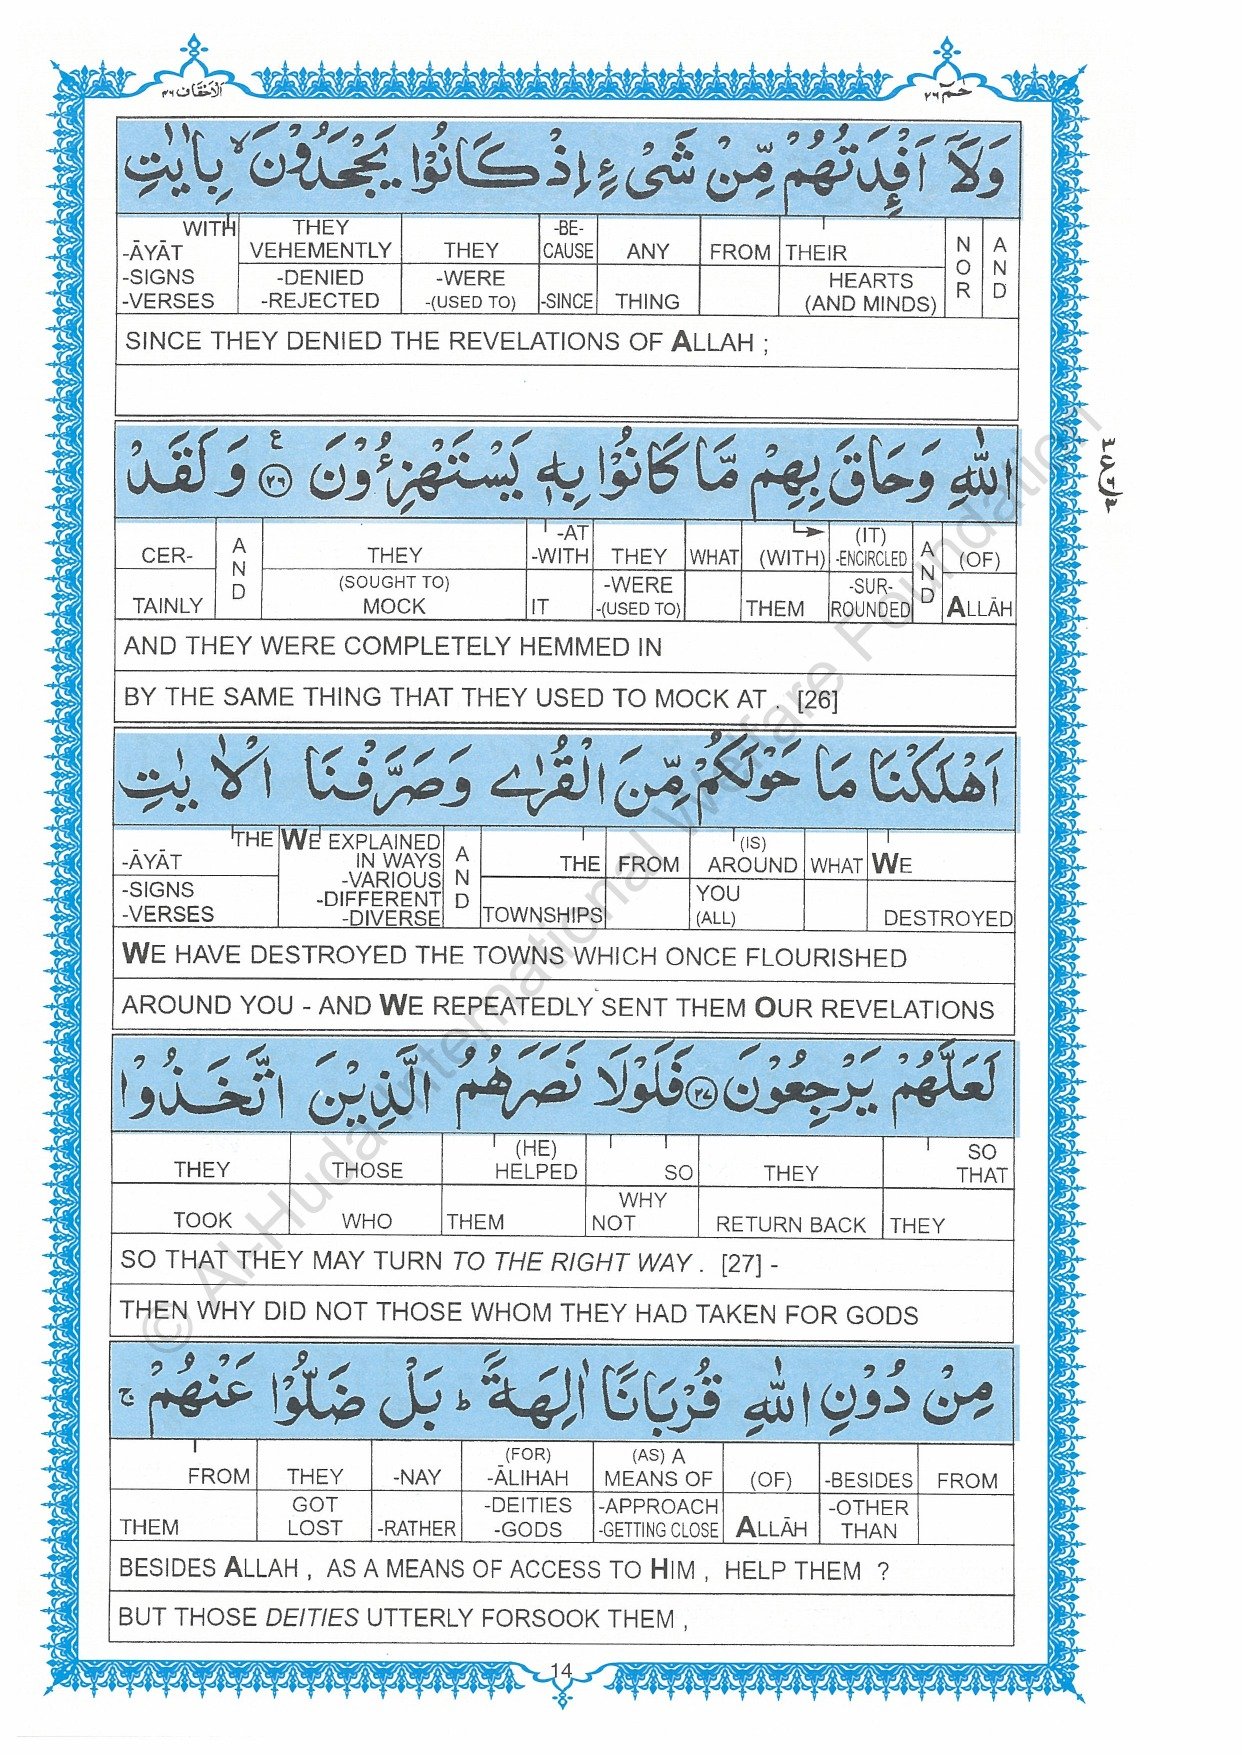 الاحقاف ٤٦
حٰمٓ ٢٦
وَلَاۤ اَفْـِٕدَتُهُمْ مِّنْ شَیْءٍ اِذْ كَانُوْا یَجْحَدُوْنَ ۙ بِاٰیٰتِ
WITH -ĀYĀT -SIGNS -VERSES | THEY VEHEMENTLY -DENIED -REJECTED | THEY -WERE -(USED TO) | -BE- CAUSE -SINCE | ANY THING | FROM | THEIR HEARTS (AND MINDS) | NOR | AND
SINCE THEY DENIED THE REVELATIONS OF ALLAH ;
اللّٰهِ وَحَاقَ بِهِمْ مَّا كَانُوْا بِهٖ یَسْتَهْزِءُوْنَ ع ٢٦ وَلَقَدْ
CER- TAINLY | AND | THEY (SOUGHT TO) MOCK | -AT -WITH IT | THEY -WERE -(USED TO) | WHAT | (WITH) THEM | (IT) -ENCIRCLED -SUR- ROUNDED | AND | (OF) ALLĀH
AND THEY WERE COMPLETELY HEMMED IN
BY THE SAME THING THAT THEY USED TO MOCK AT . [26]
اَهْلَكْنَا مَا حَوْلَكُمْ مِّنَ الْقُرٰی وَصَرَّفْنَا الْاٰیٰتِ
THE -ĀYĀT -SIGNS -VERSES | WE EXPLAINED IN WAYS -VARIOUS -DIFFERENT -DIVERSE | AND | THE TOWNSHIPS | FROM | (IS) AROUND YOU (ALL) | WHAT | WE DESTROYED
WE HAVE DESTROYED THE TOWNS WHICH ONCE FLOURISHED
AROUND YOU - AND WE REPEATEDLY SENT THEM OUR REVELATIONS
لَعَلَّهُمْ یَرْجِعُوْنَ ٢٧ فَلَوْلَا نَصَرَهُمُ الَّذِیْنَ اتَّخَذُوْا
THEY TOOK | THOSE WHO | (HE) HELPED THEM | SO WHY NOT | THEY RETURN BACK | SO THAT THEY
SO THAT THEY MAY TURN TO THE RIGHT WAY . [27] -
THEN WHY DID NOT THOSE WHOM THEY HAD TAKEN FOR GODS
مِنْ دُوْنِ اللّٰهِ قُرْبَانًا اٰلِهَةً ؕ بَلْ ضَلُّوْا عَنْهُمْ ۚ
FROM THEM | THEY GOT LOST | -NAY -RATHER | (FOR) -ĀLIHAH -DEITIES -GODS | (AS) A MEANS OF -APPROACH -GETTING CLOSE | (OF) ALLĀH | -BESIDES -OTHER THAN | FROM
BESIDES ALLAH , AS A MEANS OF ACCESS TO HIM , HELP THEM ?
BUT THOSE DEITIES UTTERLY FORSOOK THEM ,
14
© Al-Huda International Welfare Foundation